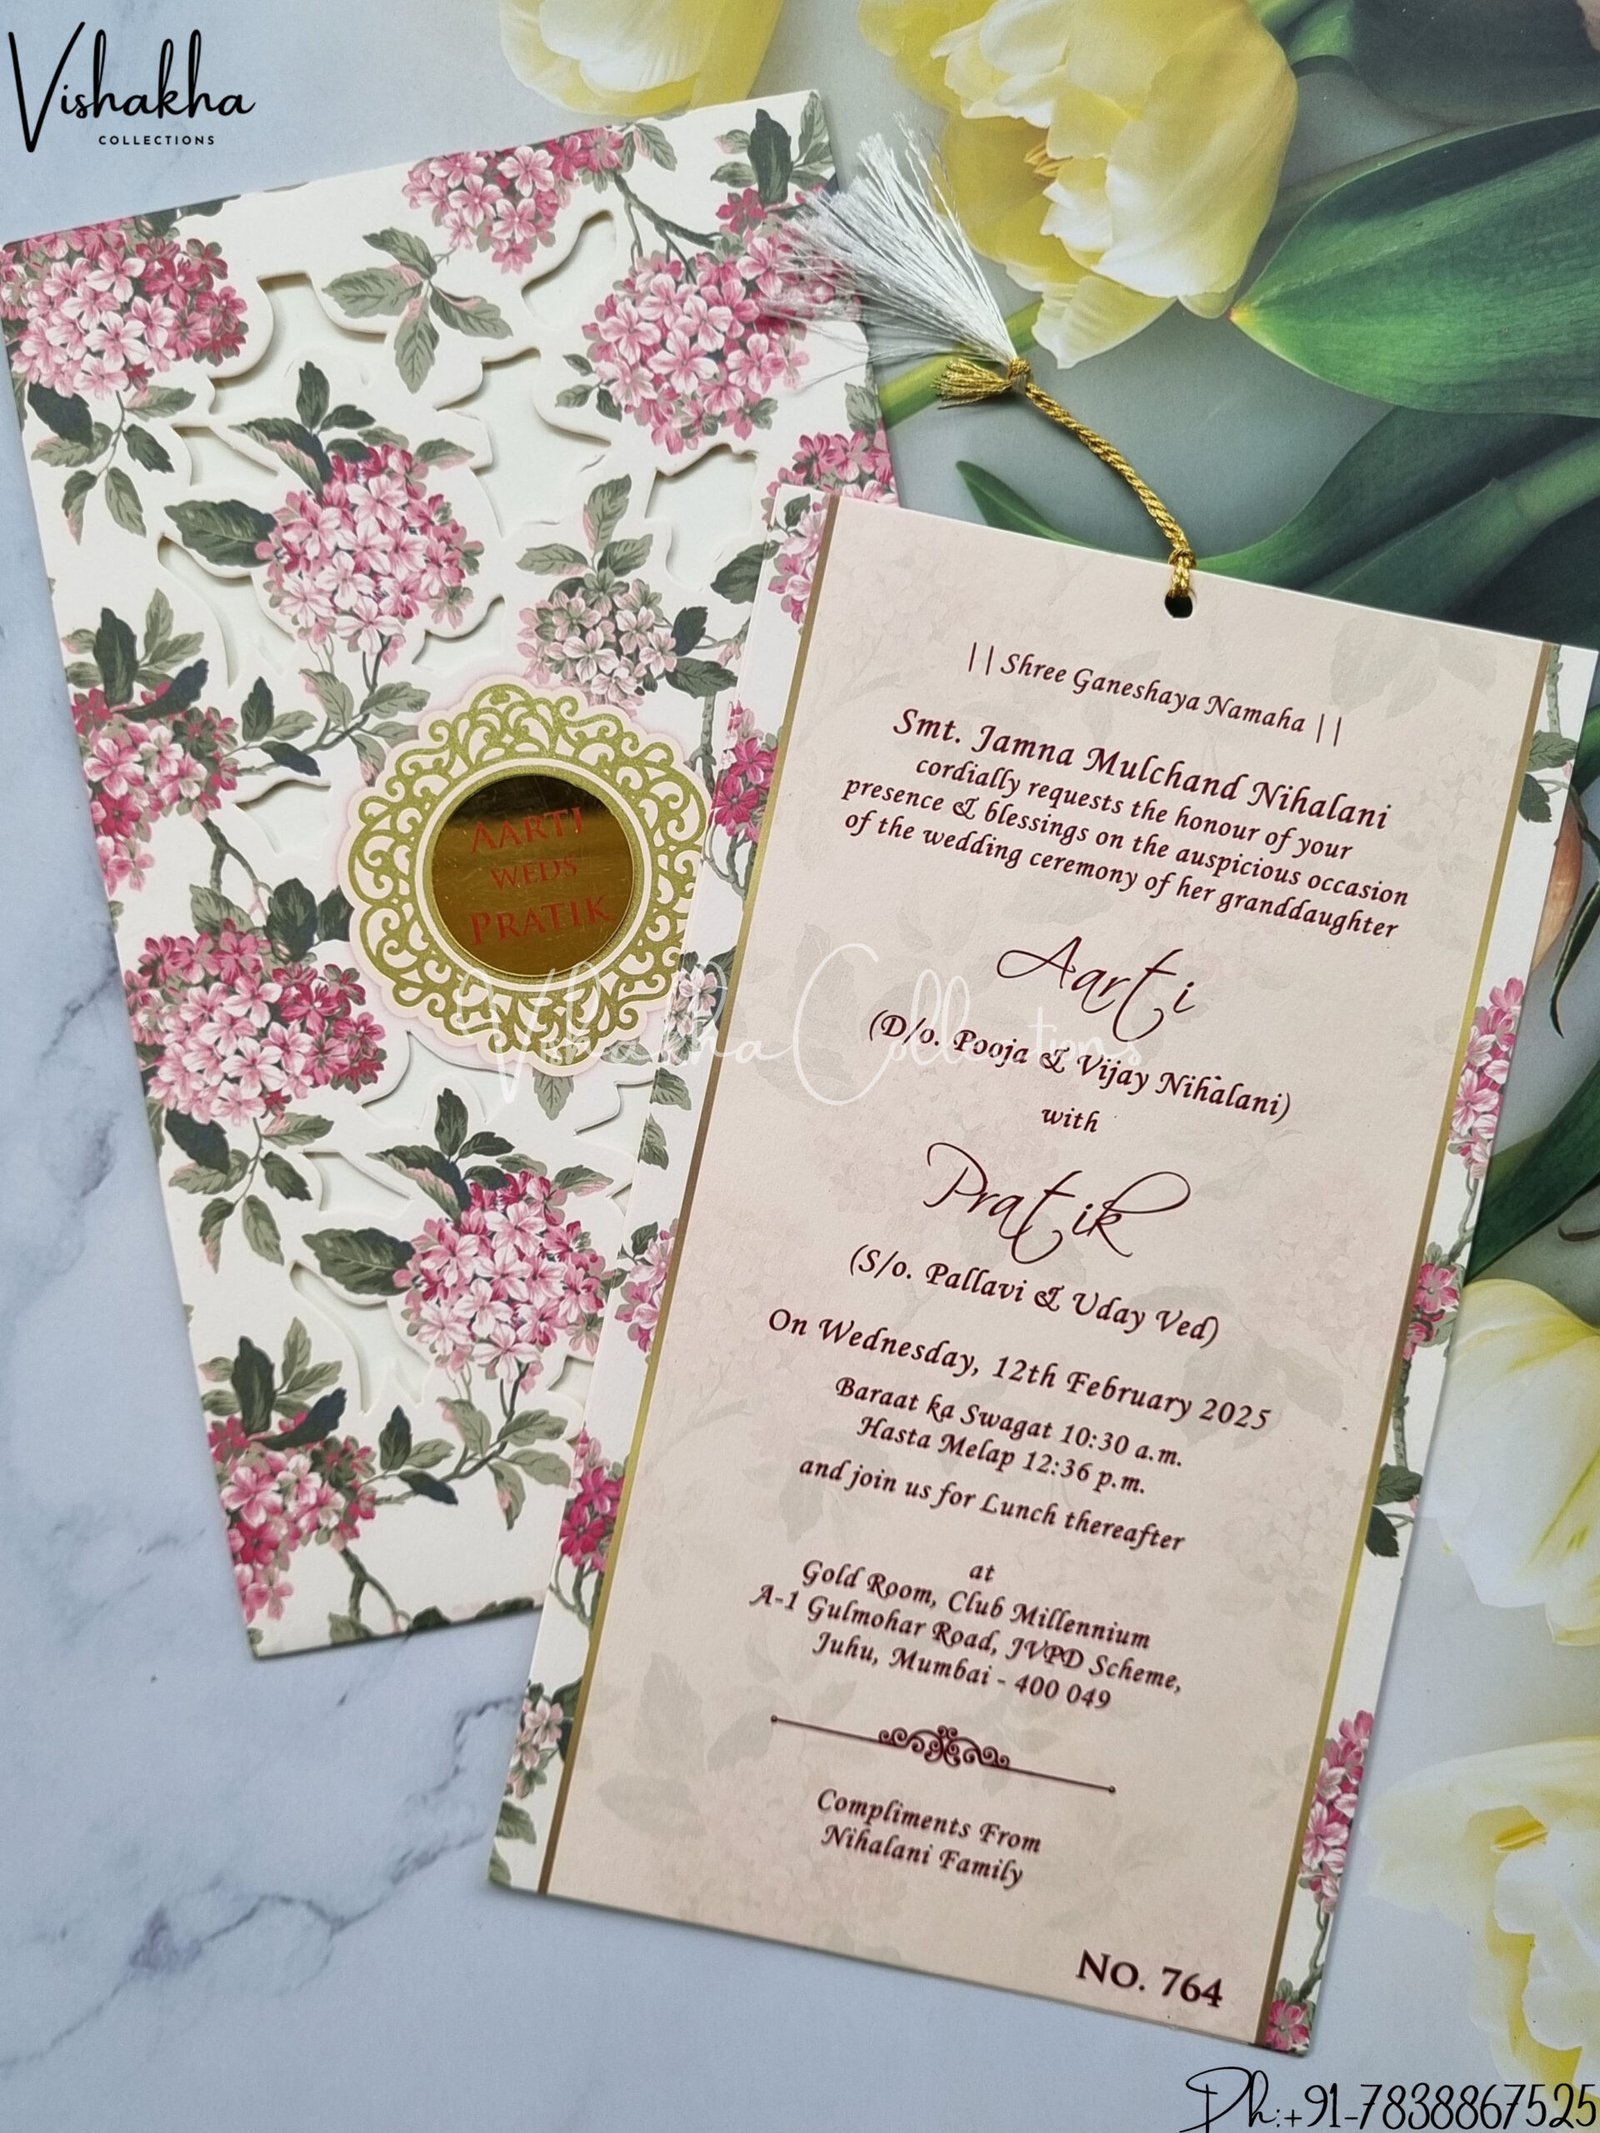 Vishakha
COLLECTIONS
AARTI
WEDS
PRATIK
|| Shree Ganeshaya Namaha ||
Smt. Jamna Mulchand Nihalani
cordially requests the honour of your
presence & blessings on the auspicious occasion
of the wedding ceremony of her granddaughter
Aarti
(D/o. Pooja & Vijay Nihalani)
with
Pratik
(S/o. Pallavi & Uday Ved)
On Wednesday, 12th February 2025
Baraat ka Swagat 10:30 a.m.
Hasta Melap 12:36 p.m.
and join us for Lunch thereafter
at
Gold Room, Club Millennium
A-1 Gulmohar Road, JVPD Scheme,
Juhu, Mumbai - 400 049
Compliments From
Nihalani Family
No. 764
Vishakha Collections
Ph.:+91-7838867525